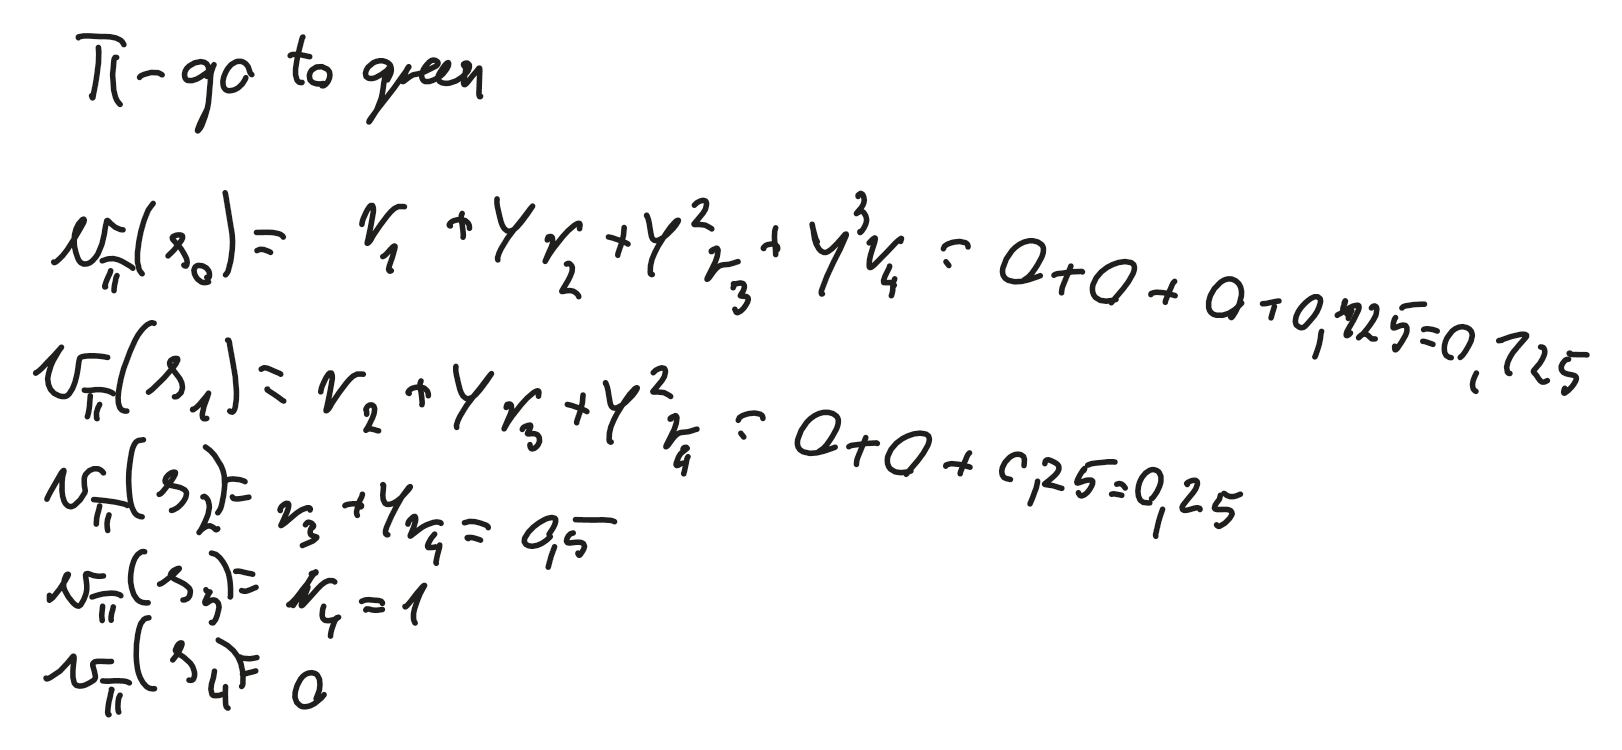 π - go to green
v_π(s_0) = r_1 + γr_2 + γ^2r_3 + γ^3r_4 = 0 + 0 + 0 + 0,125 = 0,125
v_π(s_1) = r_2 + γr_3 + γ^2r_4 = 0 + 0 + 0,25 = 0,25
v_π(s_2) = r_3 + γr_4 = 0,5
v_π(s_3) = r_4 = 1
v_π(s_4) = 0